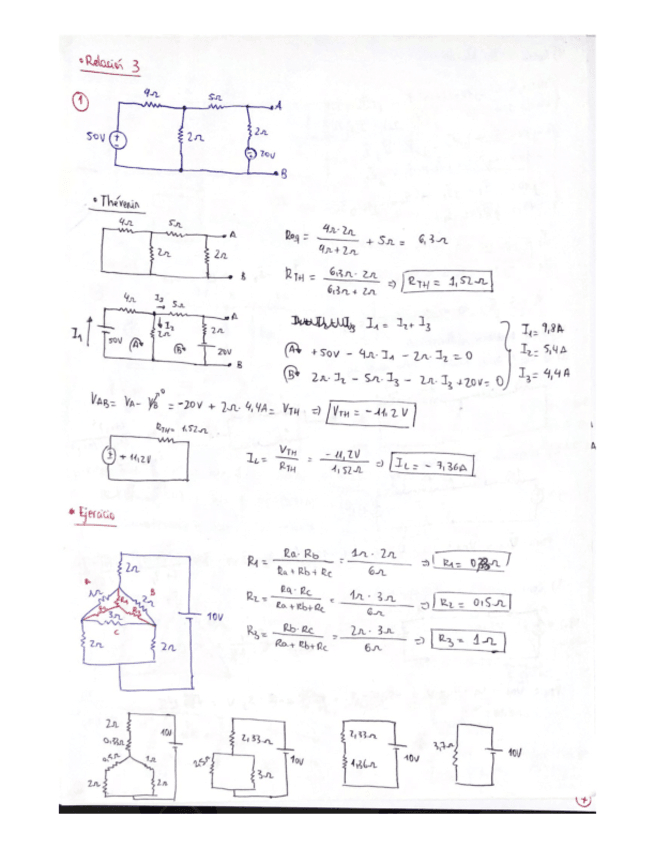 • Relación 3
1
4Ω 5Ω A
50V 2Ω 2Ω
20V
B
• Thévenin
4Ω 5Ω A
2Ω 2Ω
B
Req = 4Ω·2Ω / 4Ω+2Ω + 5Ω = 6,3Ω
RTH = 6,3Ω·2Ω / 6,3Ω+2Ω => RTH = 1,52Ω
4Ω I3 5Ω A
I1 50V A I2 2Ω B 2Ω 20V
B
I1 = I2 + I3
A +50V - 4Ω·I1 - 2Ω·I2 = 0
B 2Ω·I2 - 5Ω·I3 - 2Ω·I3 + 20V = 0
I1 = 9,8A
I2 = 5,4A
I3 = 4,4A
VAB = VA - VB 0 = -20V + 2Ω·4,4A = VTH => VTH = -11,2V
RTH = 1,52Ω
+ 11,2V
IL = VTH / RTH = -11,2V / 1,52Ω => IL = -7,36A
• Ejercicio
2Ω
A B
1Ω R1 2Ω
R2 R3
3Ω
C
2Ω 2Ω
10V
R1 = Ra·Rb / Ra+Rb+Rc = 1Ω·2Ω / 6Ω => R1 = 0,33Ω
R2 = Ra·Rc / Ra+Rb+Rc = 1Ω·3Ω / 6Ω => R2 = 0,5Ω
R3 = Rb·Rc / Ra+Rb+Rc = 2Ω·3Ω / 6Ω => R3 = 1Ω
2Ω 10V
0,33Ω
0,5Ω 1Ω
2Ω 2Ω
2,33Ω
2,5Ω 3Ω 10V
2,33Ω
1,36Ω 10V
3,7Ω 10V